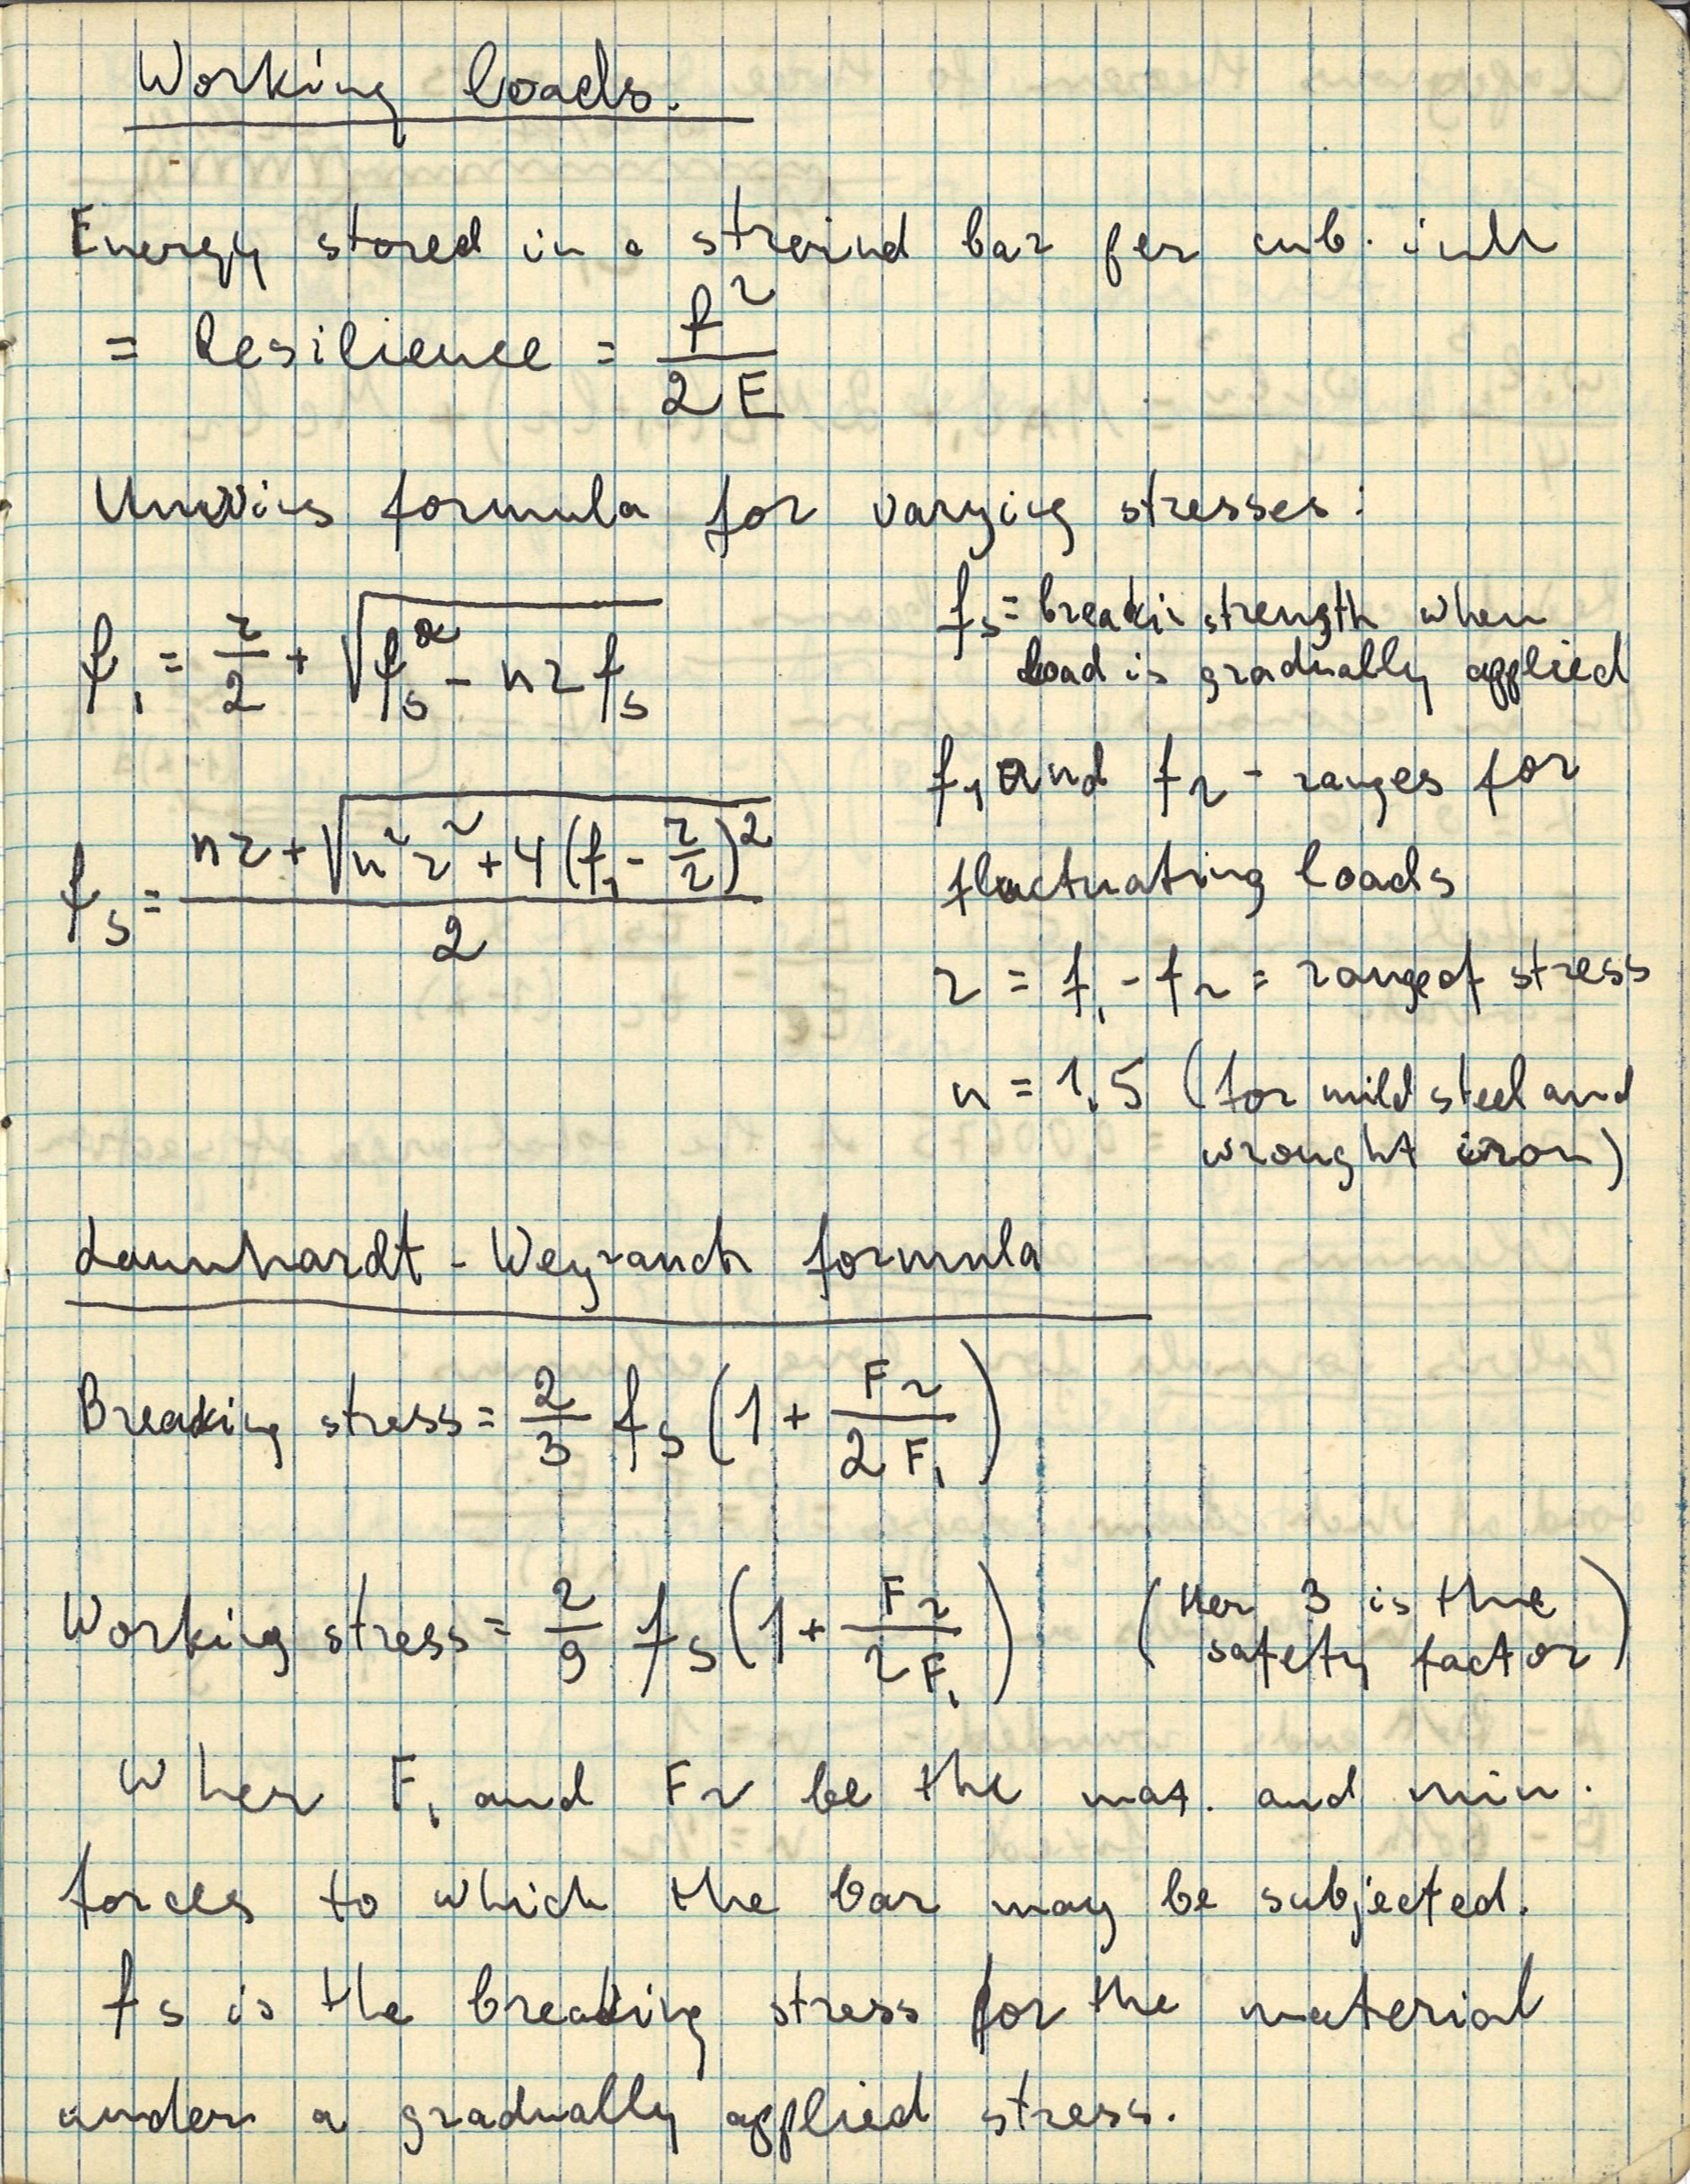 Working loads.
Energy stored in a streind bar per cub. inch
= Resilience = f² / 2E
Unwins formula for varying stresses:
f₁ = r/2 + √(fs² - nr fs)
fs = breakin strength when
load is gradually applied
f₁ and f₂ - ranges for
fs = (nr + √(n²r² + 4(f₁ - r/2)²)) / 2
fluctuating loads
r = f₁ - f₂ = range of stress
n = 1.5 (for mild steel and
wrought iron)
Launhardt - Weyrauch formula
Breaking stress = 2/3 fs (1 + F₂/2F₁)
Working stress = 2/9 fs (1 + F₂/2F₁) (Her 3 is the
safety factor)
Wher F₁ and F₂ be the max. and min.
forces to which the bar may be subjected.
fs is the breaking stress for the material
under a gradually applied stress.